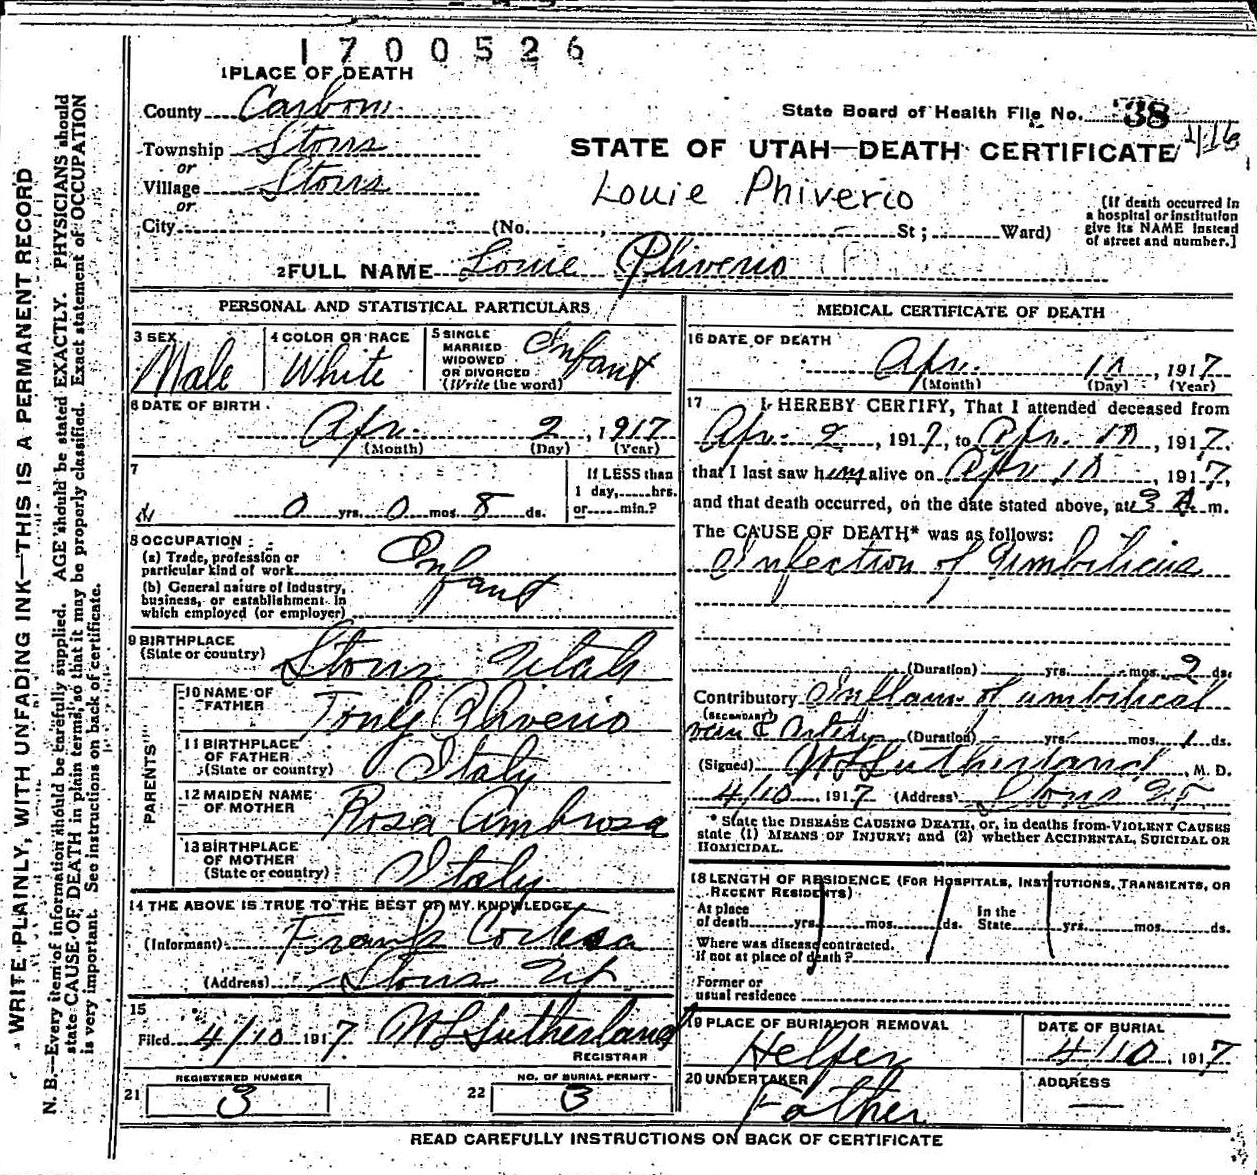 1700526
1 PLACE OF DEATH
County Carbon
State Board of Health File No. 38
416
Township Storrs
STATE OF UTAH—DEATH CERTIFICATE
or
Village Storrs
Louie Phiverio
or
City (No. , St ; Ward)
[If death occurred in
a hospital or institution
give its NAME instead
of street and number.]
2 FULL NAME Louie Phiverio
PERSONAL AND STATISTICAL PARTICULARS
3 SEX
Male
4 COLOR OR RACE
White
5 SINGLE
MARRIED
WIDOWED
OR DIVORCED
(Write the word)
Infant
6 DATE OF BIRTH
Apr. 2, 1917
(Month) (Day) (Year)
7
0 yrs. 0 mos. 8 ds.
If LESS than
1 day, hrs.
or min.?
8 OCCUPATION
(a) Trade, profession or
particular kind of work
(b) General nature of industry,
business, or establishment in
which employed (or employer)
Infant
9 BIRTHPLACE
(State or country)
Storrs Utah
PARENTS
10 NAME OF
FATHER
Tony Phiverio
11 BIRTHPLACE
OF FATHER
(State or country)
Italy
12 MAIDEN NAME
OF MOTHER
Rosa Ambrosa
13 BIRTHPLACE
OF MOTHER
(State or country)
Italy
14 THE ABOVE IS TRUE TO THE BEST OF MY KNOWLEDGE
(Informant) Frank Cortesa
(Address) Storrs Ut.
15
Filed 4/10 1917 W L Sutherland
REGISTRAR
REGISTERED NUMBER
21 3
NO. OF BURIAL PERMIT
22 3
MEDICAL CERTIFICATE OF DEATH
16 DATE OF DEATH
Apr. 10, 1917
(Month) (Day) (Year)
17 I HEREBY CERTIFY, That I attended deceased from
Apr. 2, 1917, to Apr. 10, 1917.
that I last saw him alive on Apr 10, 1917,
and that death occurred, on the date stated above, at 3 A. m.
The CAUSE OF DEATH* was as follows:
Infection of Umbilicus
(Duration) yrs. mos. 2 ds.
Contributory Inflam. of umbilical
(SECONDARY)
vein & Artery (Duration) yrs. mos. 1 ds.
(Signed) W L Sutherland, M. D.
4/10, 1917 (Address) Storrs Ut.
* State the DISEASE CAUSING DEATH, or, in deaths from VIOLENT CAUSES
state (1) MEANS OF INJURY; and (2) whether ACCIDENTAL, SUICIDAL OR
HOMICIDAL.
18 LENGTH OF RESIDENCE (FOR HOSPITALS, INSTITUTIONS, TRANSIENTS, OR
RECENT RESIDENTS)
At place
of death yrs. mos. ds.
In the
State yrs. mos. ds.
Where was disease contracted,
if not at place of death?
Former or
usual residence
19 PLACE OF BURIAL OR REMOVAL
Helper
DATE OF BURIAL
4/10, 1917
20 UNDERTAKER
Father
ADDRESS
—
READ CAREFULLY INSTRUCTIONS ON BACK OF CERTIFICATE
WRITE PLAINLY, WITH UNFADING INK—THIS IS A PERMANENT RECORD
N. B.—Every item of information should be carefully supplied. AGE should be stated EXACTLY. PHYSICIANS should
state CAUSE OF DEATH in plain terms, so that it may be properly classified. Exact statement of OCCUPATION
is very important. See instructions on back of certificate.